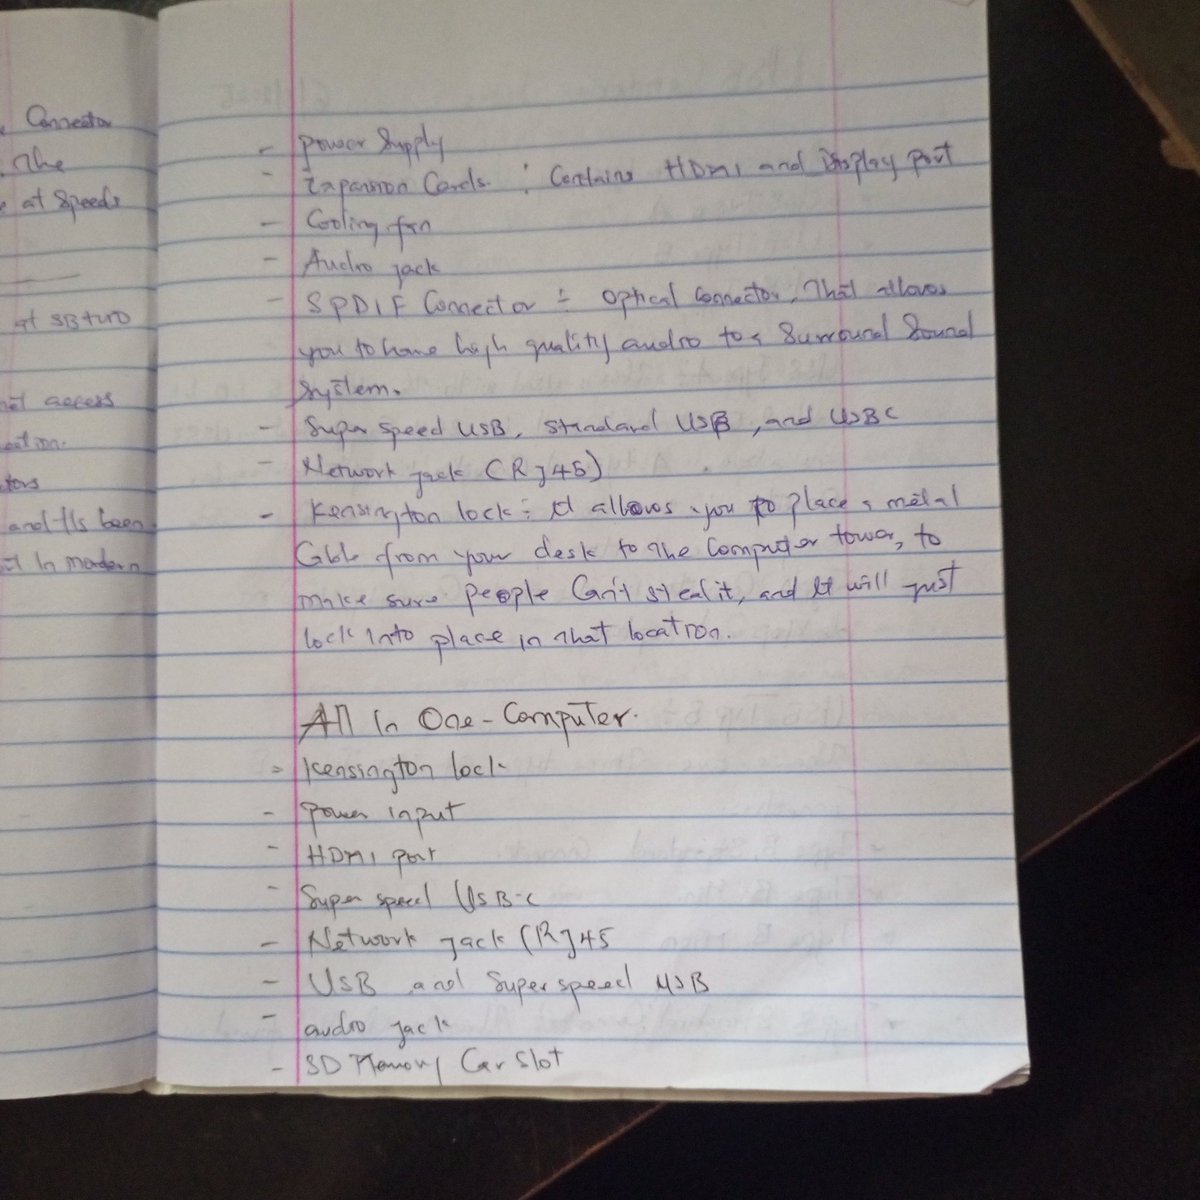 Connector
The
at Speeds
at SB+UD
access
and its been
In modern
- Power Supply
- Expansion Cards : Contains HDMI and Display port
- Cooling fan
- Audio jack
- SPDIF Connector :- Optical Connector, That allows
you to have high quality audio to a Surround Sound
System.
- Super speed USB, Standard USB, and USBC
- Network jack (RJ45)
- Kensington lock :- It allows you to place a metal
Cable from your desk to the Computer tower, to
make sure people Can't steal it, and It will just
lock Into place in That location.
All In One-Computer.
- Kensington lock
- Power input
- HDMI port
- Super speed USB-C
- Network jack (RJ45
- USB and Super speed USB
- audio jack
- SD Memory Car Slot